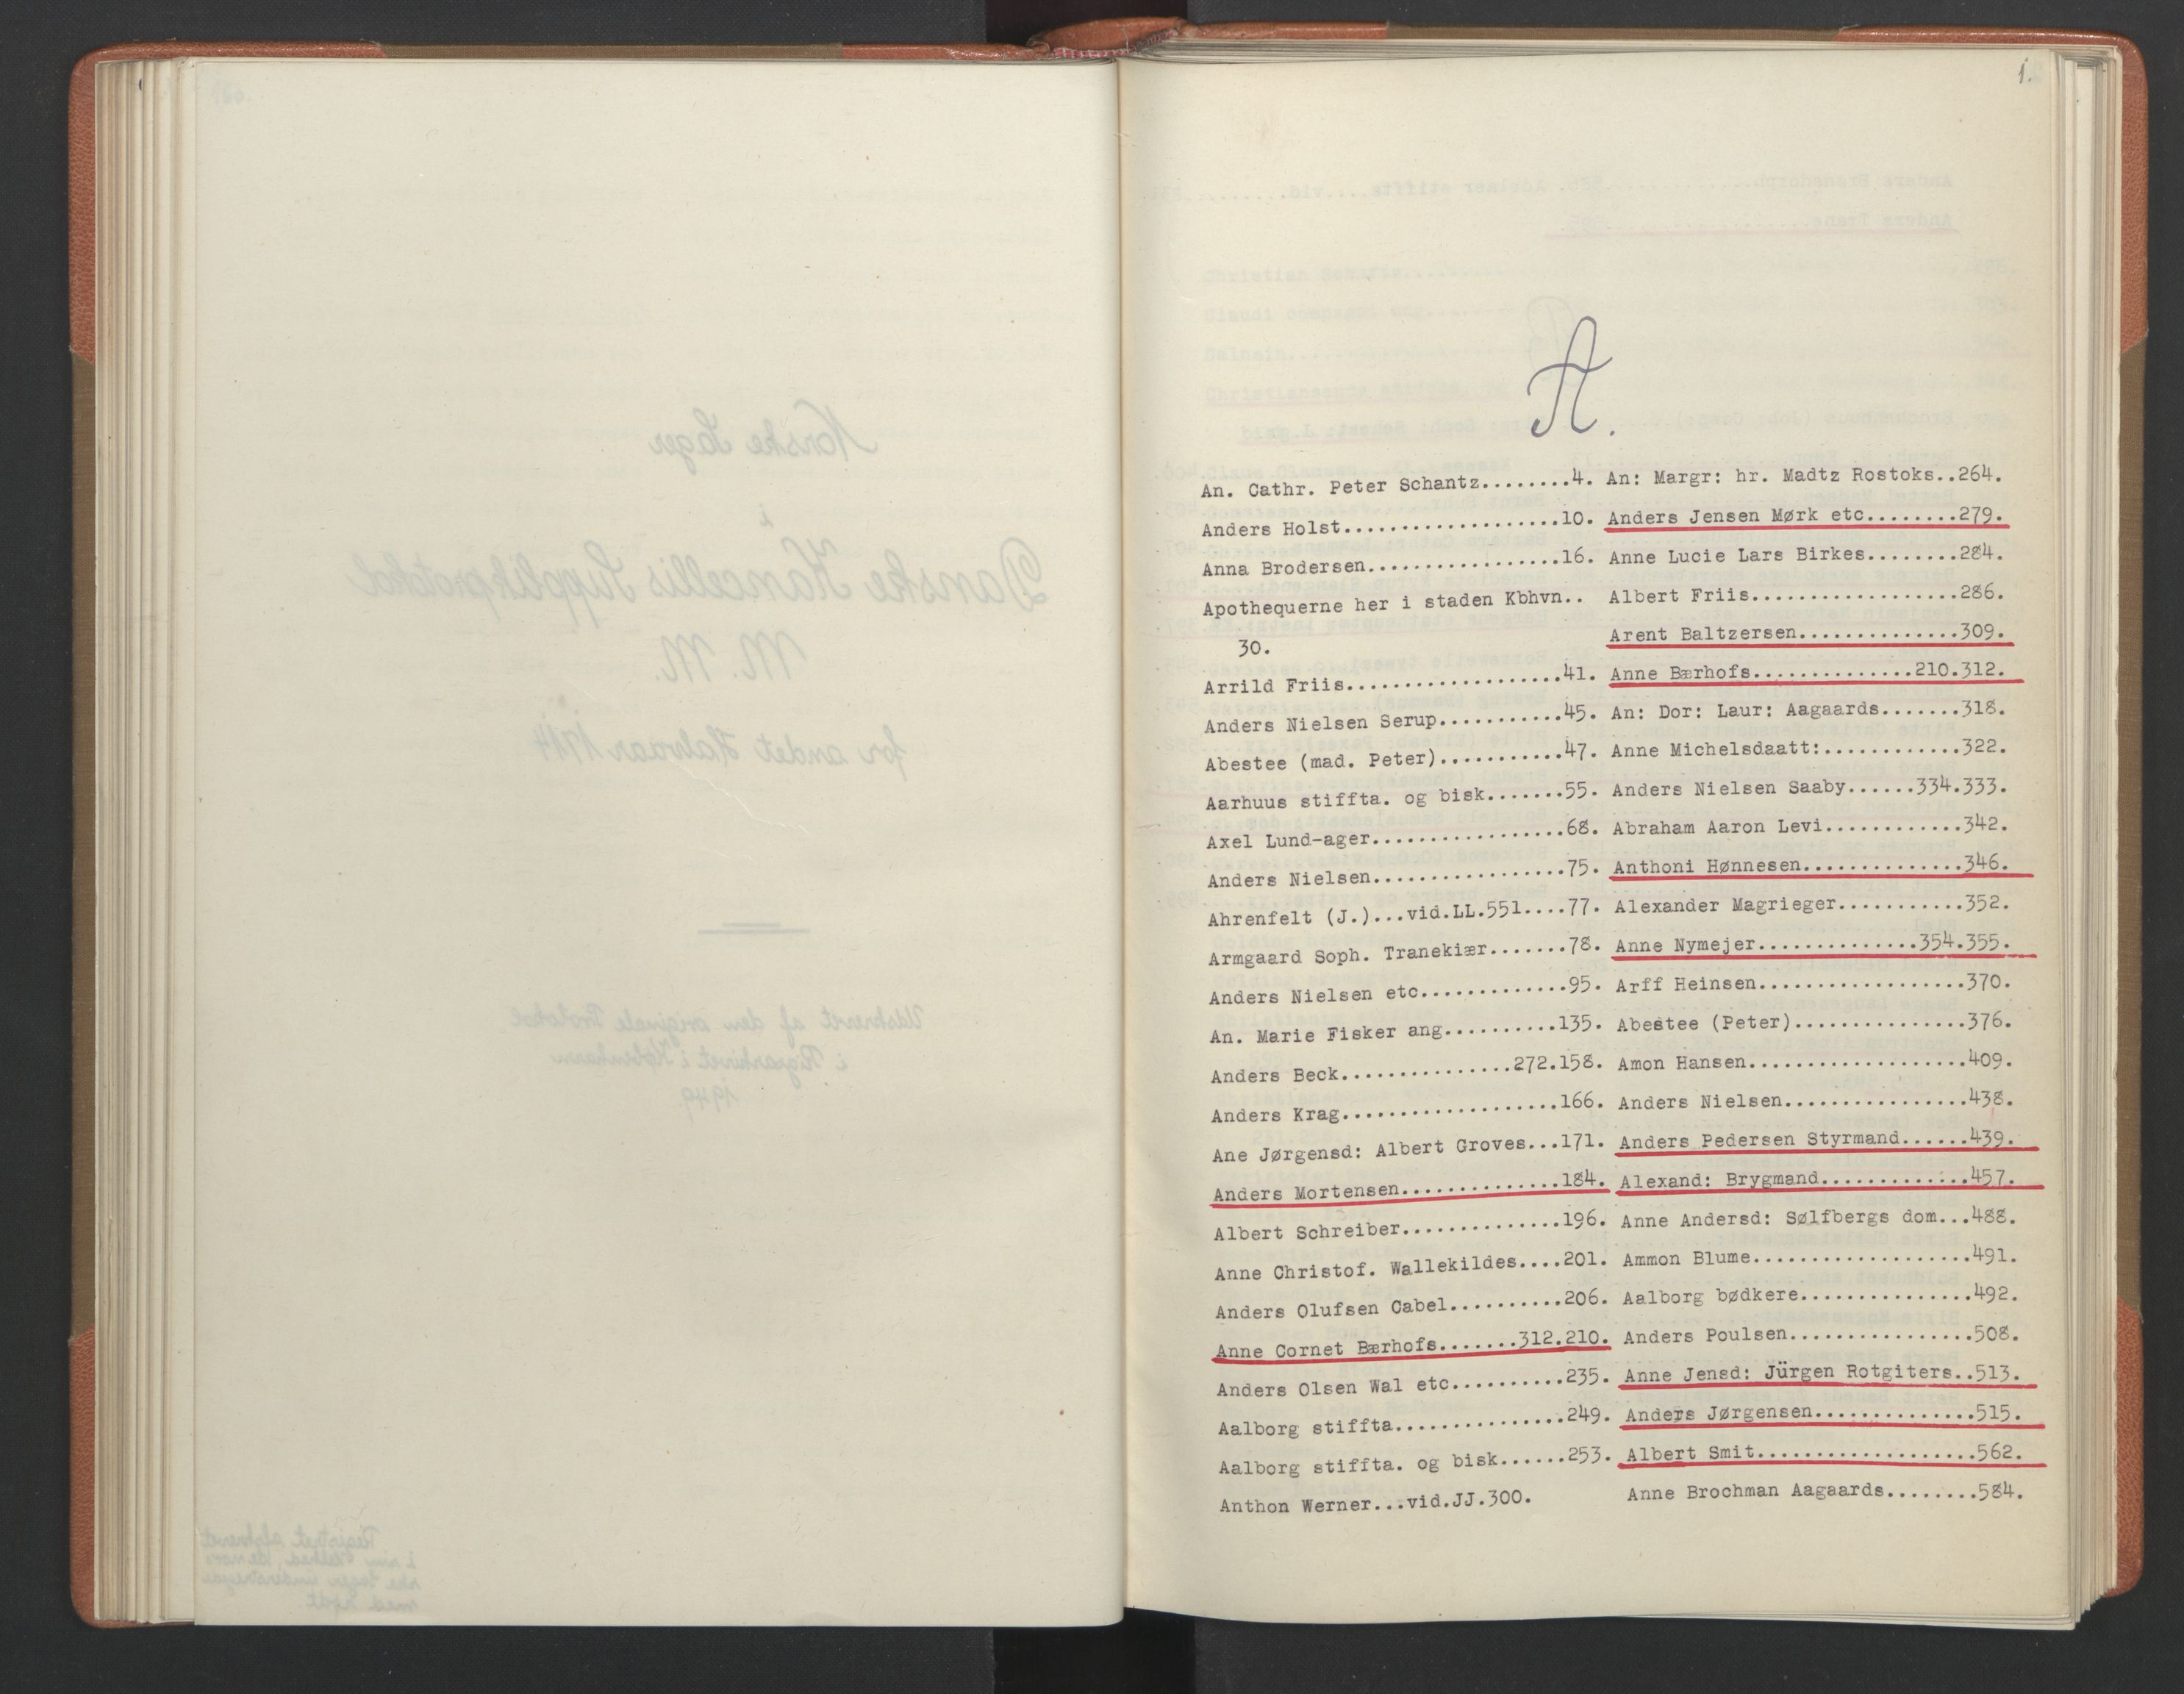 1.
A.
An. Cathr. Peter Schantz........4.
Anders Holst...................10.
Anna Brodersen.................16.
Apothequerne her i staden Kbhvn..
30.
Arrild Friis...................41.
Anders Nielsen Serup...........45.
Abestee (mad. Peter)...........47.
Aarhuus stiffta. og bisk.......55.
Axel Lund-ager.................68.
Anders Nielsen.................75.
Ahrenfelt (J.)...vid.LL.551....77.
Armgaard Soph. Tranekiær.......78.
Anders Nielsen etc.............95.
An. Marie Fisker ang..........135.
Anders Beck...............272.158.
Anders Krag...................166.
Ane Jørgensd: Albert Groves...171.
Anders Mortensen..............184.
Albert Schreiber..............196.
Anne Christof. Wallekildes....201.
Anders Olufsen Cabel..........206.
Anne Cornet Bærhofs.......312.210.
Anders Olsen Wal etc..........235.
Aalborg stiffta...............249.
Aalborg stiffta. og bisk......253.
Anthon Werner...vid.JJ.300.
An: Margr: hr. Madtz Rostoks..264.
Anders Jensen Mørk etc........279.
Anne Lucie Lars Birkes........284.
Albert Friis..................286.
Arent Baltzersen..............309.
Anne Bærhofs..............210.312.
An: Dor: Laur: Aagaards.......318.
Anne Michelsdaatt:............322.
Anders Nielsen Saaby......334.333.
Abraham Aaron Levi............342.
Anthoni Hønnesen..............346.
Alexander Magrieger...........352.
Anne Nymejer..............354.355.
Arff Heinsen..................370.
Abestee (Peter)...............376.
Amon Hansen...................409.
Anders Nielsen................438.
Anders Pedersen Styrmand......439.
Alexand: Brygmand.............457.
Anne Andersd: Sølfbergs dom...488.
Ammon Blume...................491.
Aalborg bødkere...............492.
Anders Poulsen................508.
Anne Jensd: Jürgen Rotgiters..513.
Anders Jørgensen..............515.
Albert Smit...................562.
Anne Brochman Aagaards........584.